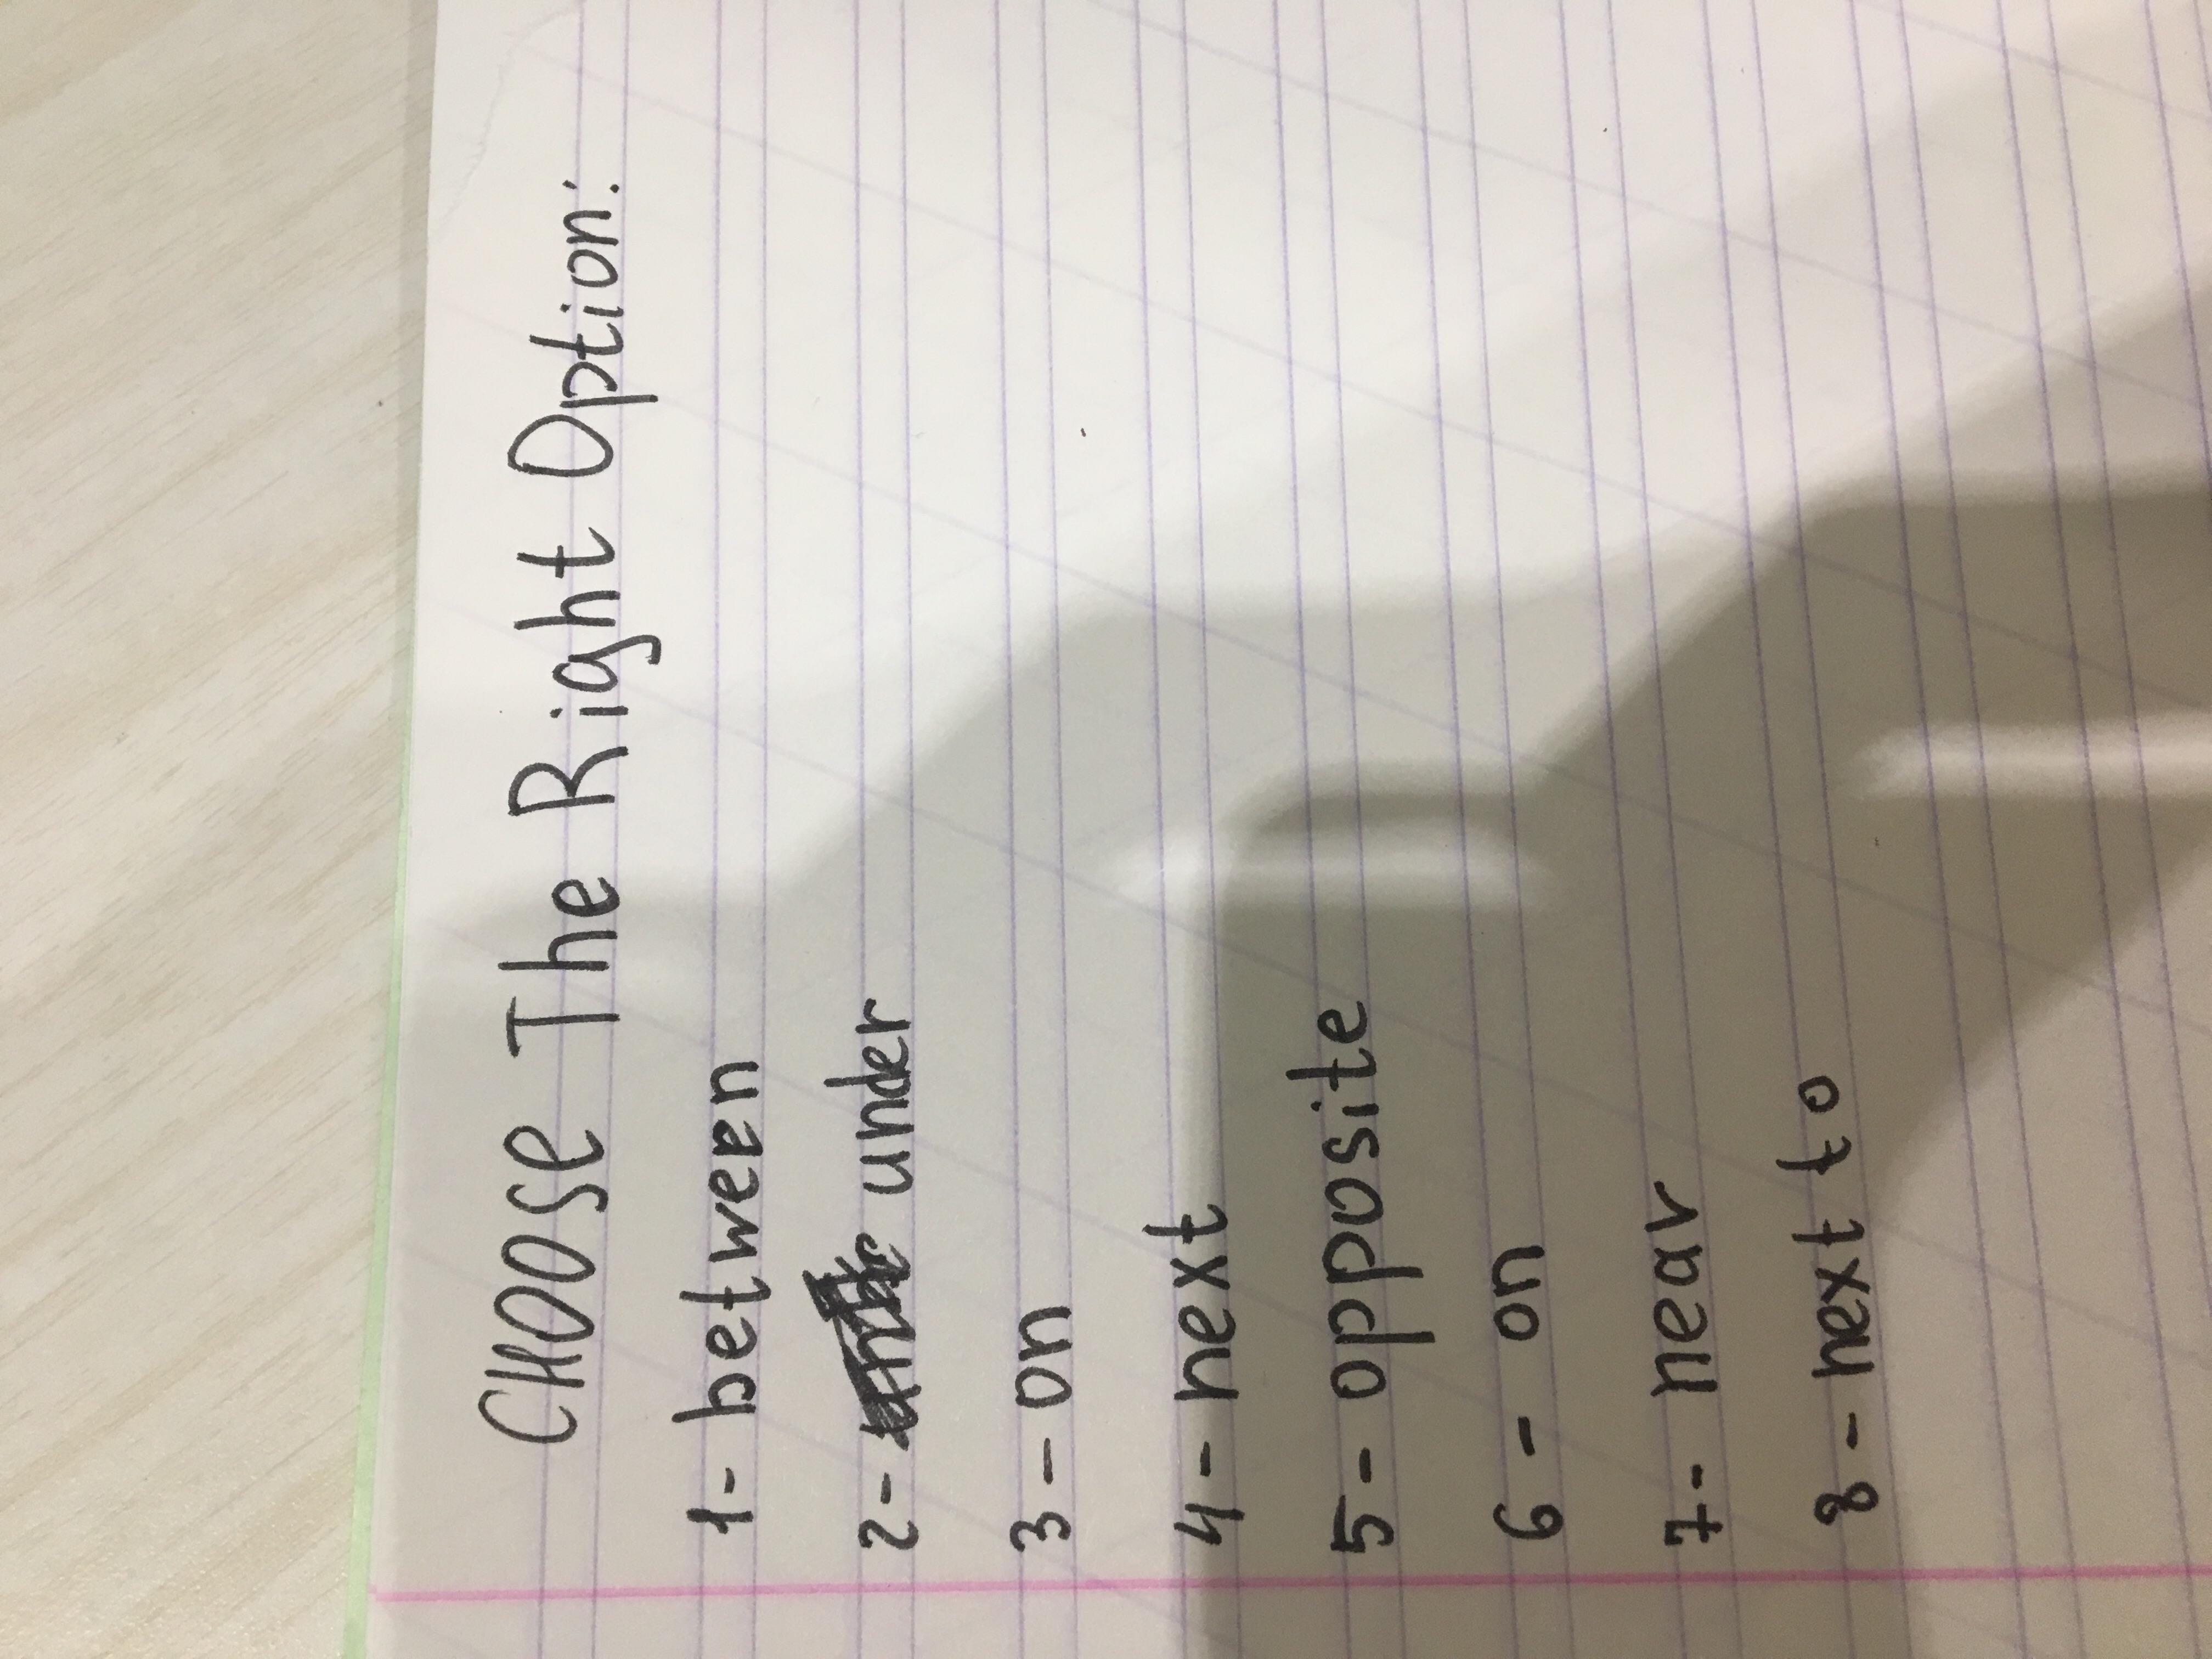 CHOOSE The Right Option:
1- between
2- under
3- on
4- next
5- opposite
6 - on
7- near
8 - next to